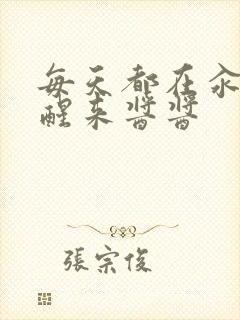 每天都在汆
醒来醬醬
張宗俊